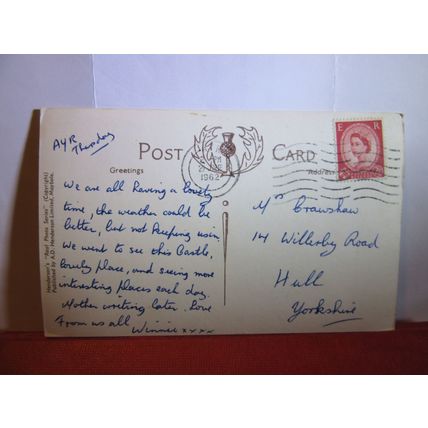 AYR
Thursday
POST CARD
Greetings
Address
PM
1962
E R
Henderson's "Real Photo Series" (Copyright)
Published by A.D. Henderson Limited, Maybole.
We are all having a lovely
time, the weather could be
better, but not keeping us in.
We went to see this Castle,
lovely place, and seeing more
interesting places each day,
Mother writing later. Love
From us all Winnie xxxx
Mrs Crawshaw
14 Willerby Road
Hull
Yorkshire